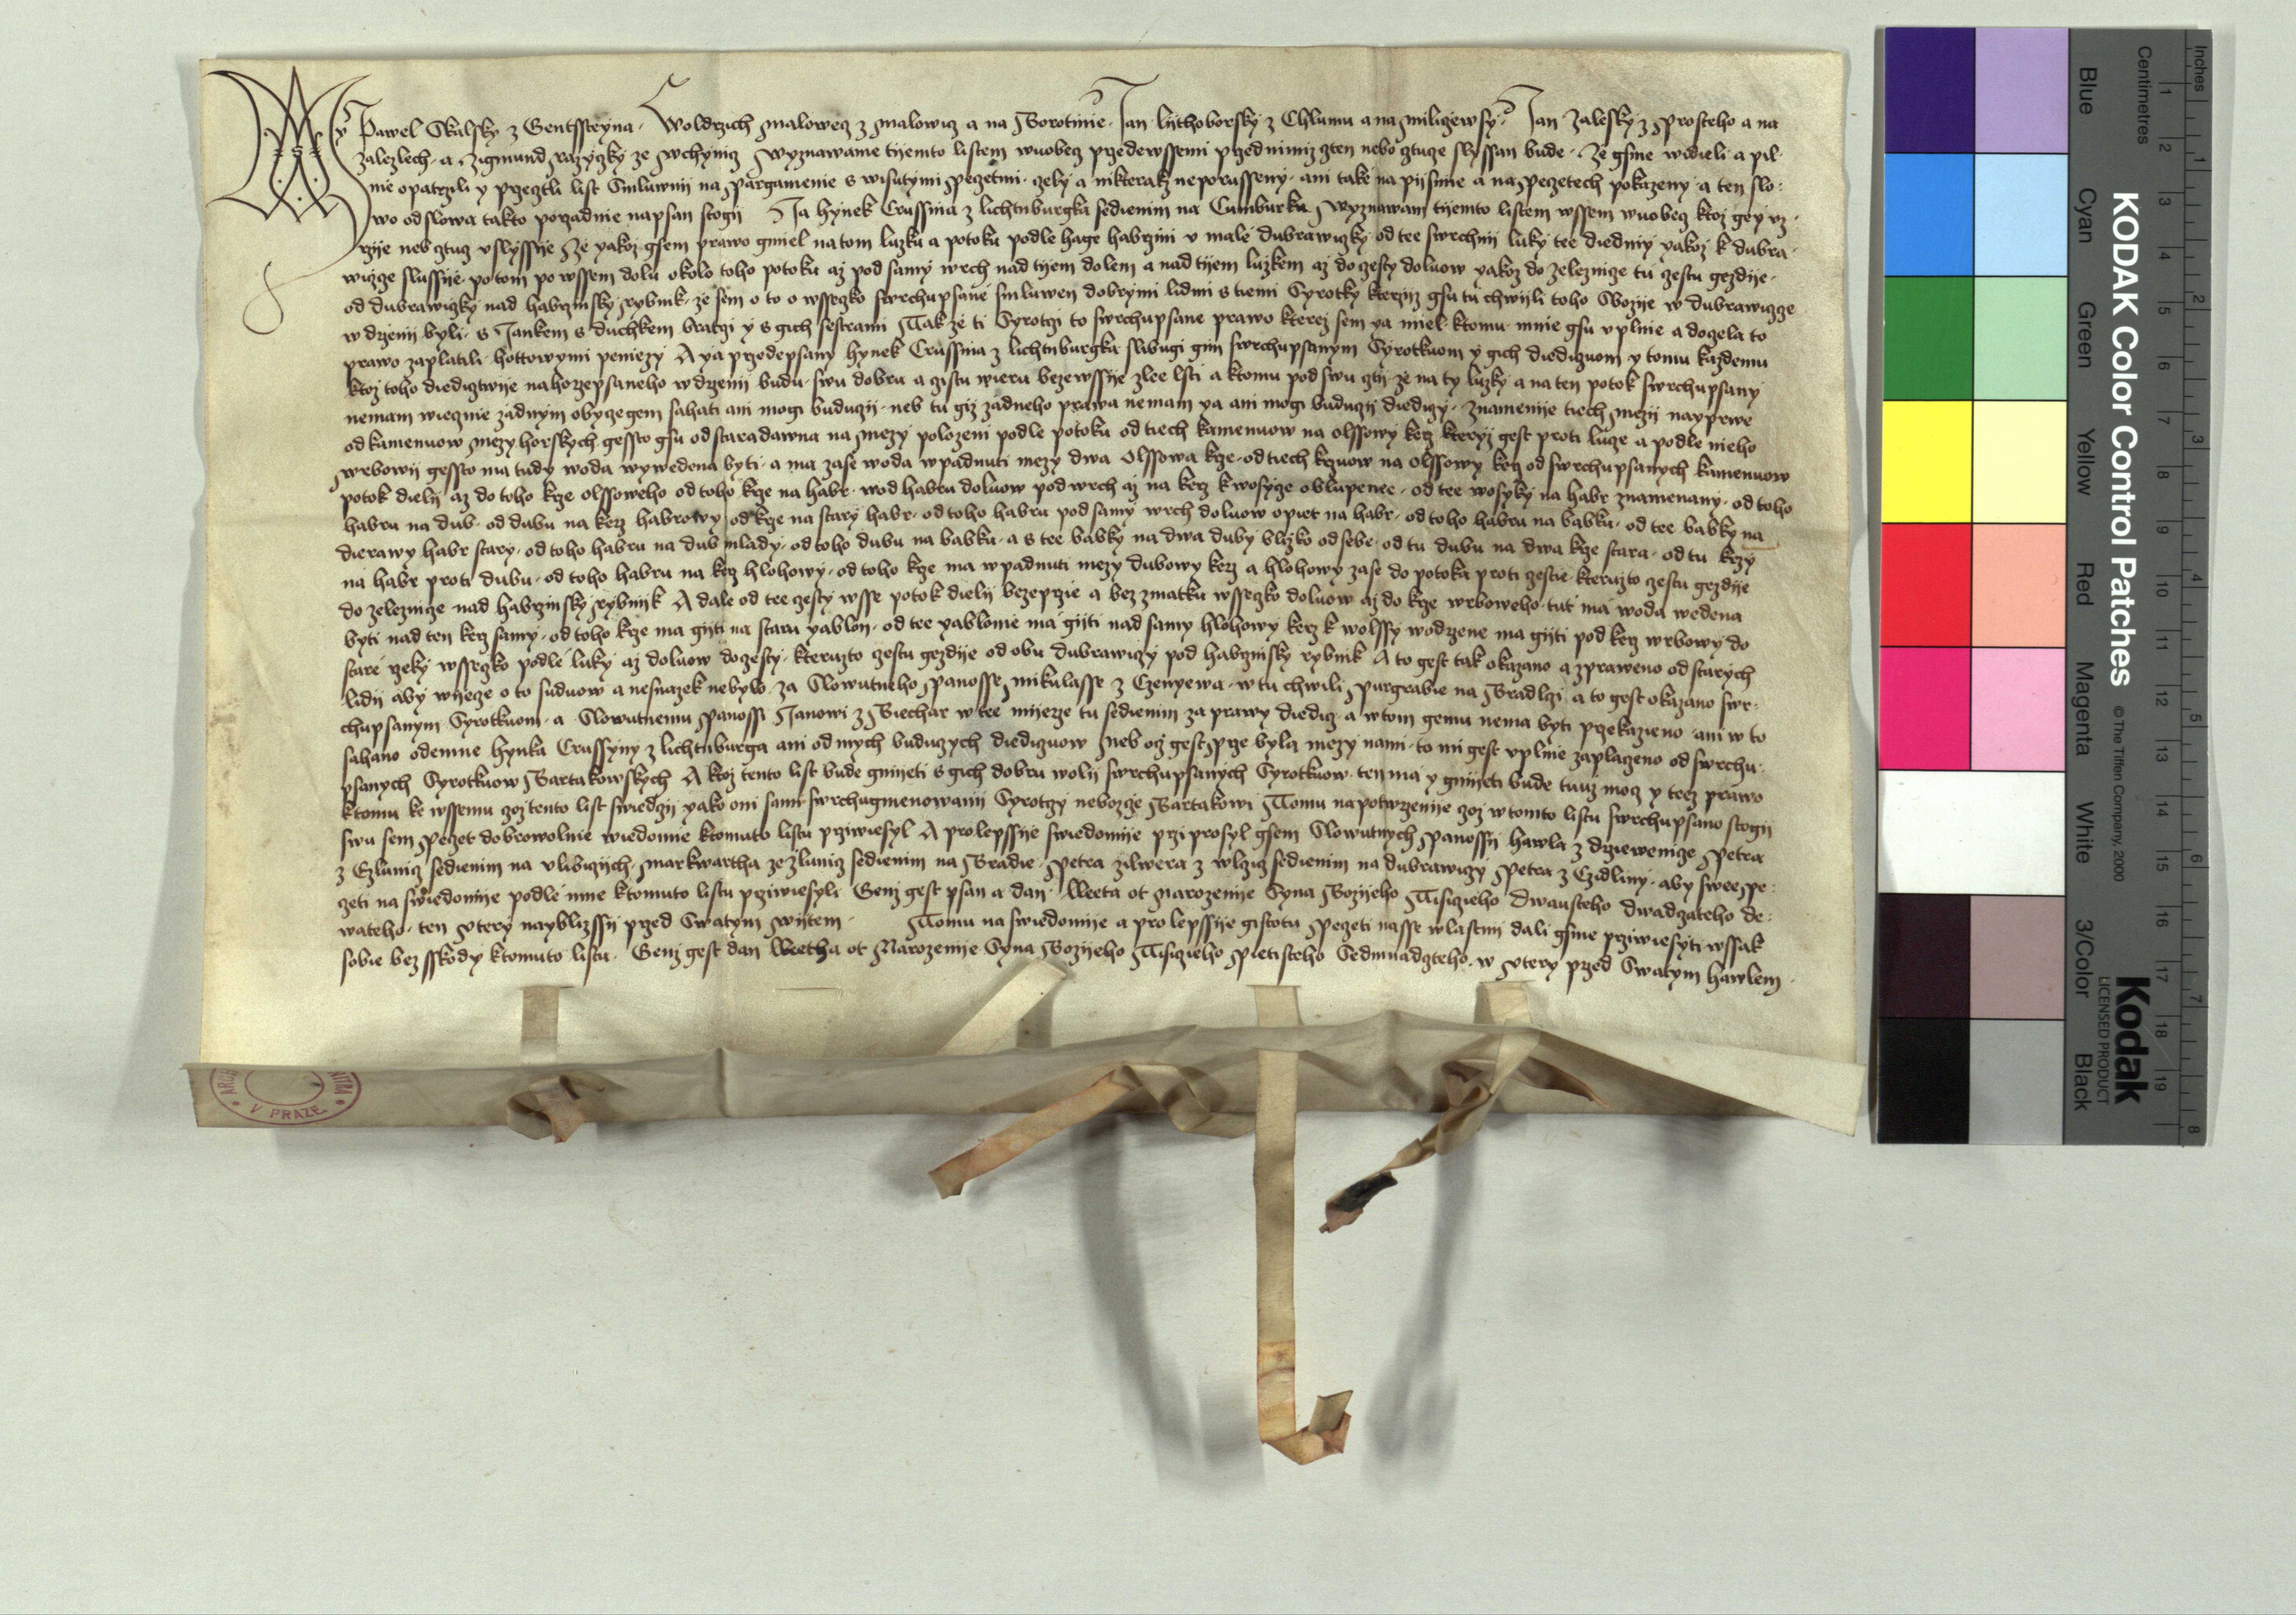 My Pawel Skalsky z Gentssteyna · Woldrzich Malowecz z Malowicz a na Borotinie · Jan Lijthoborsky z Chlumu a na Miliczewsy · Jan Zalesky z Prosteho a na
Zalezlech · a Zigmund Razyczky ze Wchynicz Wyznawame tijemto listem wuobecz przedewssemi przed nimiz cten nebo cztucze slyssan bude · Ze gsme widieli a pil-
nie opatrzili y przecztli list Smluwnij na Pargamenie s wisutymi Peczetmi · czely a nikterakz neporusseny · ani take na pijsmie a na Peczetech pokazeny · a ten slo-
wo od slowa takto porzadnie napsan stogij Ja Hynek Crussina z Lichtnburgka sedienim na Cumburku Wyznawam tijemto listem wssem wuobecz ktoz geij vz-
rzije neb cztucz vslyssije Ze yakoz gsem prawo gmiel na tom luzku a potoku podle hage habrzini v male dubrawiczky · od tee swrchnij luky tee diedniy yakoz k dubra-
wicze slussije · potom po wssem dolu okolo toho potoku az pod samy wrch nad tijem dolem a nad tijem luzkem az do czesty doluow yakoz do zeleznicze tu czestu gezdije ·
od dubrawiczky nad habrzinsky Rybnik · ze sem o to o wsseczko swrchupsane smluwen dobrymi lidmi s tiemi Syrotky kterziz gsu tu chwijli toho Bozije w dubrawicze
w drzenij byli · s Jankem s duchkem bratrzi y s gich sestrami Tak ze ti Syrotczi to swrchupsane prawo kterez sem ya miel · ktomu mnie gsu vplnie a doczela to
prawo zaplatili · hottowymi peniezy A ya przedepsany Hynek Crussina z Lichtnburgka slibugi gim swrchupsanym Syrotkuom y gich diediczuom y tomu kazdemu
ktoz toho diedicztwije nahorzepsaneho w drzenij budu · swu dobru a gistu wieru bezewssije zlee lsti a ktomu pod swu cztij ze na ty luzky a na ten potok swrchupsany
nemam wiecznie zadnym obyczegem sahati ani mogi buduczij · neb tu giz zadneho prawa nemam ya ani mogi buduczij diediczy · znamenije tiech Mezij nayprwe
od kamenuow Mezy horskych gessto gsu od staradawna na Mezy polozeni podle potoku od tiech kamenuow na olssowy kerz kteryz gest proti luze a podle nieho
Wrbowij gessto ma tudy woda wywedena byti · a ma zase woda wpadnuti mezy dwa Olssowa krze · od tiech krzuow na olssowy kerz od swrchupsanych kamenuow
potok dielij az do toho krze olssoweho od toho krze na habr · wod habru doluow pod wrch az na kerz k wosycze oblupenee · od tee wosyky na habr znamenany · od toho
habru na dub · od dubu na kerz habrowy od krze na stary habr · od toho habru pod samy wrch doluow opiet na habr · od toho habru na babku · od tee babky na
dierawy habr stary · od toho habru na dub mlady · od toho dubu na babku · a s tee babky na dwa duby blizko od sebe · od tu dubu na dwa krze stara · od tu krzy
na habr proti dubu · od toho habru na kerz hlohowy · od toho krze ma wpadnuti mezy dubowy kerz a hlohowy zase do potoka proti czestie · kteruzto czestu gezdije
do zeleznicze nad habrzinsky Rybnijk A dale od tee czesty wsse potok dielij bezeprzie a bez zmatku wsseczko doluow az do krze wrboweho · tut ma woda wedena
byti nad ten kerz samy · od toho krze ma gijti na staru yablon · od tee yablonie ma gijti nad samy hlohowy kerz k wolssy wodrzene ma gijti pod kerz wrbowy do
stare rzeky wsseczko podle luky az doluow do czesty · kteruzto czestu gezdije od obu dubrawiczy pod habrzinsky rybnik A to gest tak okazano a zpraweno od starych
lidij aby wijecze o to suduow a nesnazek nebylo · za Slowutneho Panosse Mikulasse z Czenyewa · w tu chwili Purgrabie na Bradlczi · a to gest okazano swr-
chupsanym Syrotkuom · a Slowutnemu Panossi Janowi z Biechar w tee mijerze tu sedienim za prawy diedicz · a w tom gemu nema byti przekazieno · ani w to
sahano odemne Hynka Crussyny z Lichtnburga ani od mych buduczych diediczuow Neb oz gest Prze byla mezy nami · to mi gest vplnie zaplaczeno od swrchu-
psanych Syrotkuow Bartakowskych A ktoz tento list bude gmijeti s gich dobru wolij swrchupsanych Syrotkuow · ten ma y gmijeti bude tuuz mocz y teez prawo
ktomu ke wssemu coz tento list swiedczij yako oni sami swrchugmenowanij Syrotczy nebozcze Bartakowi Tomu na potwrzenije coz w tomto listu swrchupsano stogij
swu sem Peczet dobrowolnie wiedomie ktomuto listu prziwiesyl A pro lepssije swiedomije przi prosyl gsem Slowutnych Panossij Hawla z Drziewenicze Petra
z Czlunicz sedienim na vlibiczijch · Markwartha ze Zlunicz sedienim na Bradie · Petra Zilwera z Wlczicz sedienim na dubrawiczy Petra z Czidliny · aby swee Pe-
czeti na swiedomije podle mne ktomuto listu prziwiesyli Genz gest psan a dan · Leeta ot Narozenije Syna Bozijeho Tisiczieho dwausteho dwadczateho de-
wateho · ten Vtery nayblizssij przed Swatym Wijtem · Tomu na swiedomije a pro lepssije gistotu Peczeti nasse wlastnij dali gsme prziwiesyti wssak
sobie bez sskody ktomuto listu · Genz gest dan Leetha ot Narozenije Syna Bozijeho Tisiczieho Pietisteho Sedmnadczteho · w Vtery przed Swatym Hawlem ·
V PRAZE
KODAK Color Control Patches
© The Tiffen Company, 2000
Kodak
LICENSED PRODUCT
Inches
Centimetres
Blue
Cyan
Green
Yellow
Red
Magenta
White
3/Color
Black
1 2 3 4 5 6 7 8 9 10 11 12 13 14 15 16 17 18 19
1 2 3 4 5 6 7 8